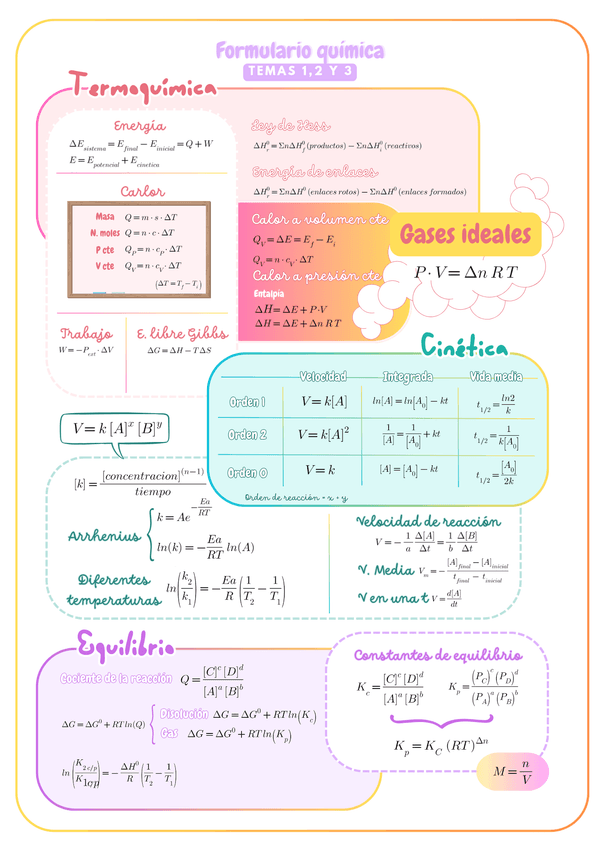 Formulario química
TEMAS 1,2 Y 3
Termoquímica
Energía
ΔE_sistema = E_final − E_inicial = Q + W
E = E_potencial + E_cinetica
Carlor
Masa Q = m · s · ΔT
N. moles Q = n · c · ΔT
P cte Q_p = n · c_p · ΔT
V cte Q_V = n · c_V · ΔT
(ΔT = T_f − T_i)
Trabajo
W = −P_ext · ΔV
E. libre Gibbs
ΔG = ΔH − TΔS
Ley de Hess
ΔH_r^0 = ΣnΔH_f^0 (productos) − ΣnΔH_i^0 (reactivos)
Energía de enlaces
ΔH_r^0 = ΣnΔH^0 (enlaces rotos) − ΣnΔH^0 (enlaces formados)
Calor a volumen cte
Q_V = ΔE = E_f − E_i
Q_V = n · c_V · ΔT
Calor a presión cte
Entalpia
ΔH = ΔE + P·V
ΔH = ΔE + Δn R T
Gases ideales
P·V = Δn R T
Cinética
Velocidad Integrada Vida media
Orden 1 V = k[A] ln[A] = ln[A_0] − kt t_1/2 = ln2/k
Orden 2 V = k[A]^2 1/[A] = 1/[A_0] + kt t_1/2 = 1/k[A_0]
Orden 0 V = k [A] = [A_0] − kt t_1/2 = [A_0]/2k
Orden de reacción = x + y
V = k [A]^x [B]^y
[k] = [concentracion]^(n−1)/tiempo
Arrhenius
k = Ae^(−Ea/RT)
ln(k) = −Ea/RT ln(A)
Diferentes temperaturas ln(k_2/k_1) = −Ea/R (1/T_2 − 1/T_1)
Velocidad de reacción
V = −1/a Δ[A]/Δt = 1/b Δ[B]/Δt
V. Media V_m = −([A]_final − [A]_inicial)/(t_final − t_inicial)
V en una t V = d[A]/dt
Equilibrio
Cociente de la reacción Q = [C]^c [D]^d/[A]^a [B]^b
ΔG = ΔG^0 + RTln(Q)
Disolución ΔG = ΔG^0 + RTln(K_c)
Gas ΔG = ΔG^0 + RTln(K_p)
ln(K_2 c/p/K_1 c/p) = −ΔH^0/R (1/T_2 − 1/T_1)
Constantes de equilibrio
K_c = [C]^c [D]^d/[A]^a [B]^b K_p = (P_C)^c (P_D)^d/(P_A)^a (P_B)^b
K_p = K_C (RT)^Δn
M = n/V